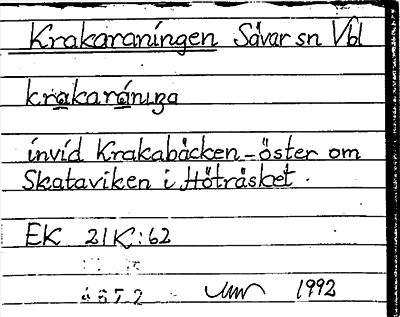 Krakaraningen Sävar sn Vbl
krakaráninga
invid Krakabäcken - öster om
Skataviken i Höträsket.
EK 21K:62
1992